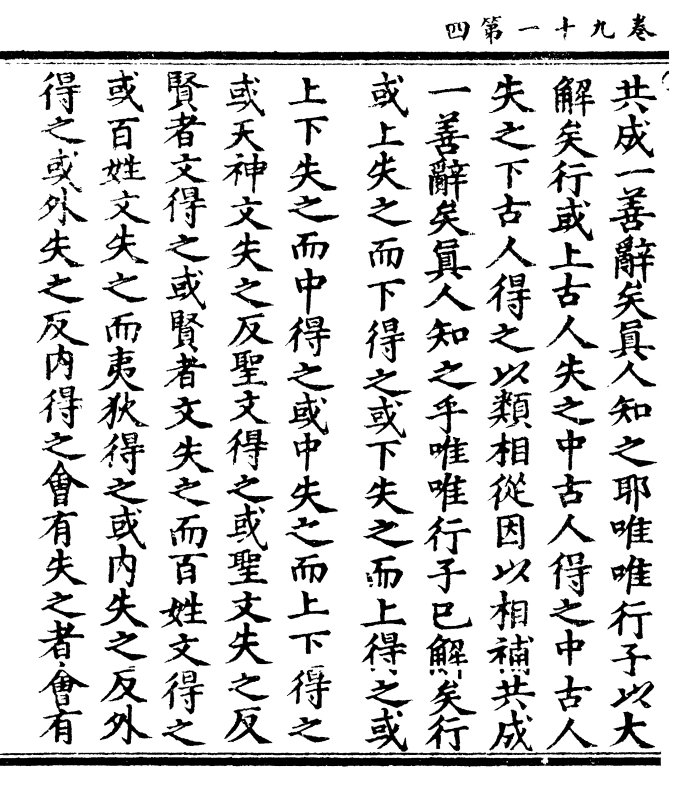 卷九十一第四
共成一善辭矣眞人知之耶唯唯行子以大
解矣行或上古人失之中古人得之中古人
失之下古人得之以類相從因以相補共成
一善辭矣眞人知之乎唯唯行子已解矣行
或上失之而下得之或下失之而上得之或
上下失之而中得之或中失之而上下得之
或天神文失之反聖文得之或聖文失之反
賢者文得之或賢者文失之而百姓文得之
或百姓文失之而夷狄得之或內失之反外
得之或外失之反內得之會有失之者會有